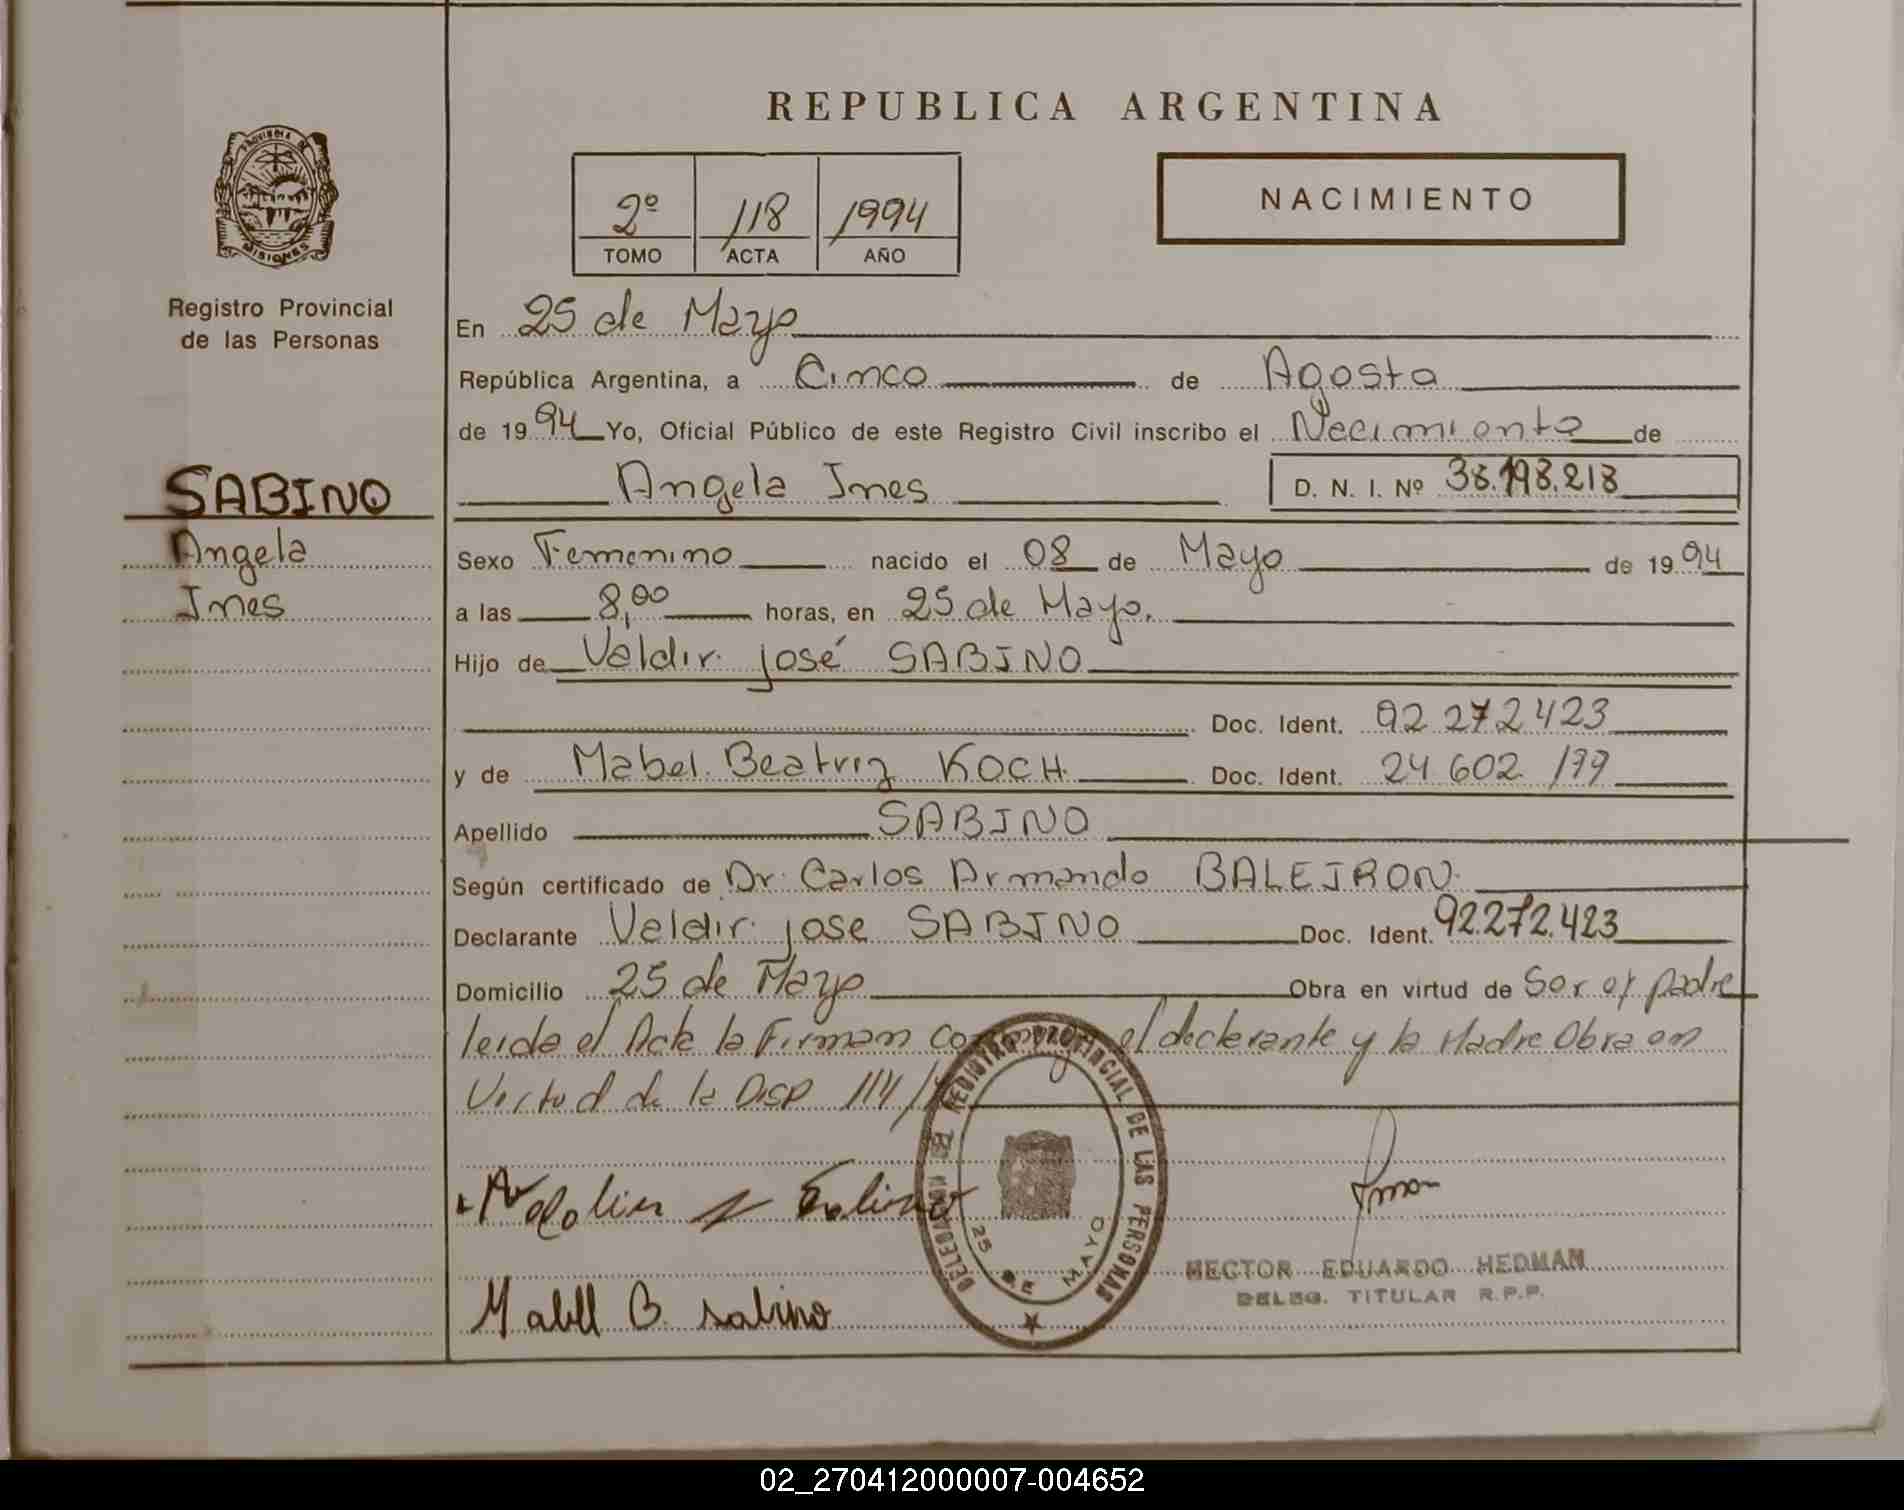 REPUBLICA ARGENTINA
PROVINCIA DE MISIONES
2º 118 1994
TOMO ACTA AÑO
NACIMIENTO
Registro Provincial
de las Personas
En 25 de Mayo
República Argentina, a Cinco de Agosto
de 1994 Yo, Oficial Público de este Registro Civil inscribo el Nacimiento de
SABINO
Angela Ines D. N. I. Nº 38.198.218
Angela
Sexo Femenino nacido el 08 de Mayo de 1994
Ines
a las 8,00 horas, en 25 de Mayo.
Hijo de Valdir José SABINO
Doc. Ident. 92 272 423
y de Mabel Beatriz KOCH Doc. Ident. 24 602 179
Apellido SABINO
Según certificado de Dr. Carlos Armando BALEIRON
Declarante Valdir jose SABINO Doc. Ident. 92.272.423
Domicilio 25 de Mayo Obra en virtud de Ser el padre
leida el Acta la Firman conmigo el declarante y la Madre Obra en
Virtud de la Disp 114/
DELEGACION DEL REGISTRO PROVINCIAL DE LAS PERSONAS
25 DE MAYO
HECTOR EDUARDO HEDMAN
DELEG. TITULAR R.P.P.
Mabel B. Sabino
02_270412000007-004652